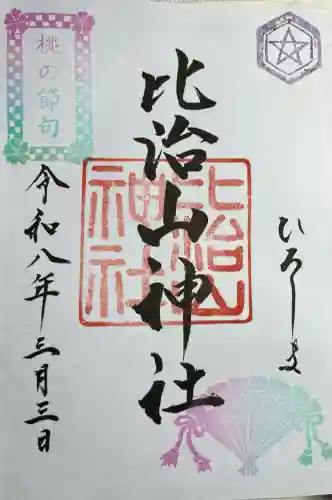 ひろしま
比治山神社
比治山
神社
桃の節句
令和八年三月三日